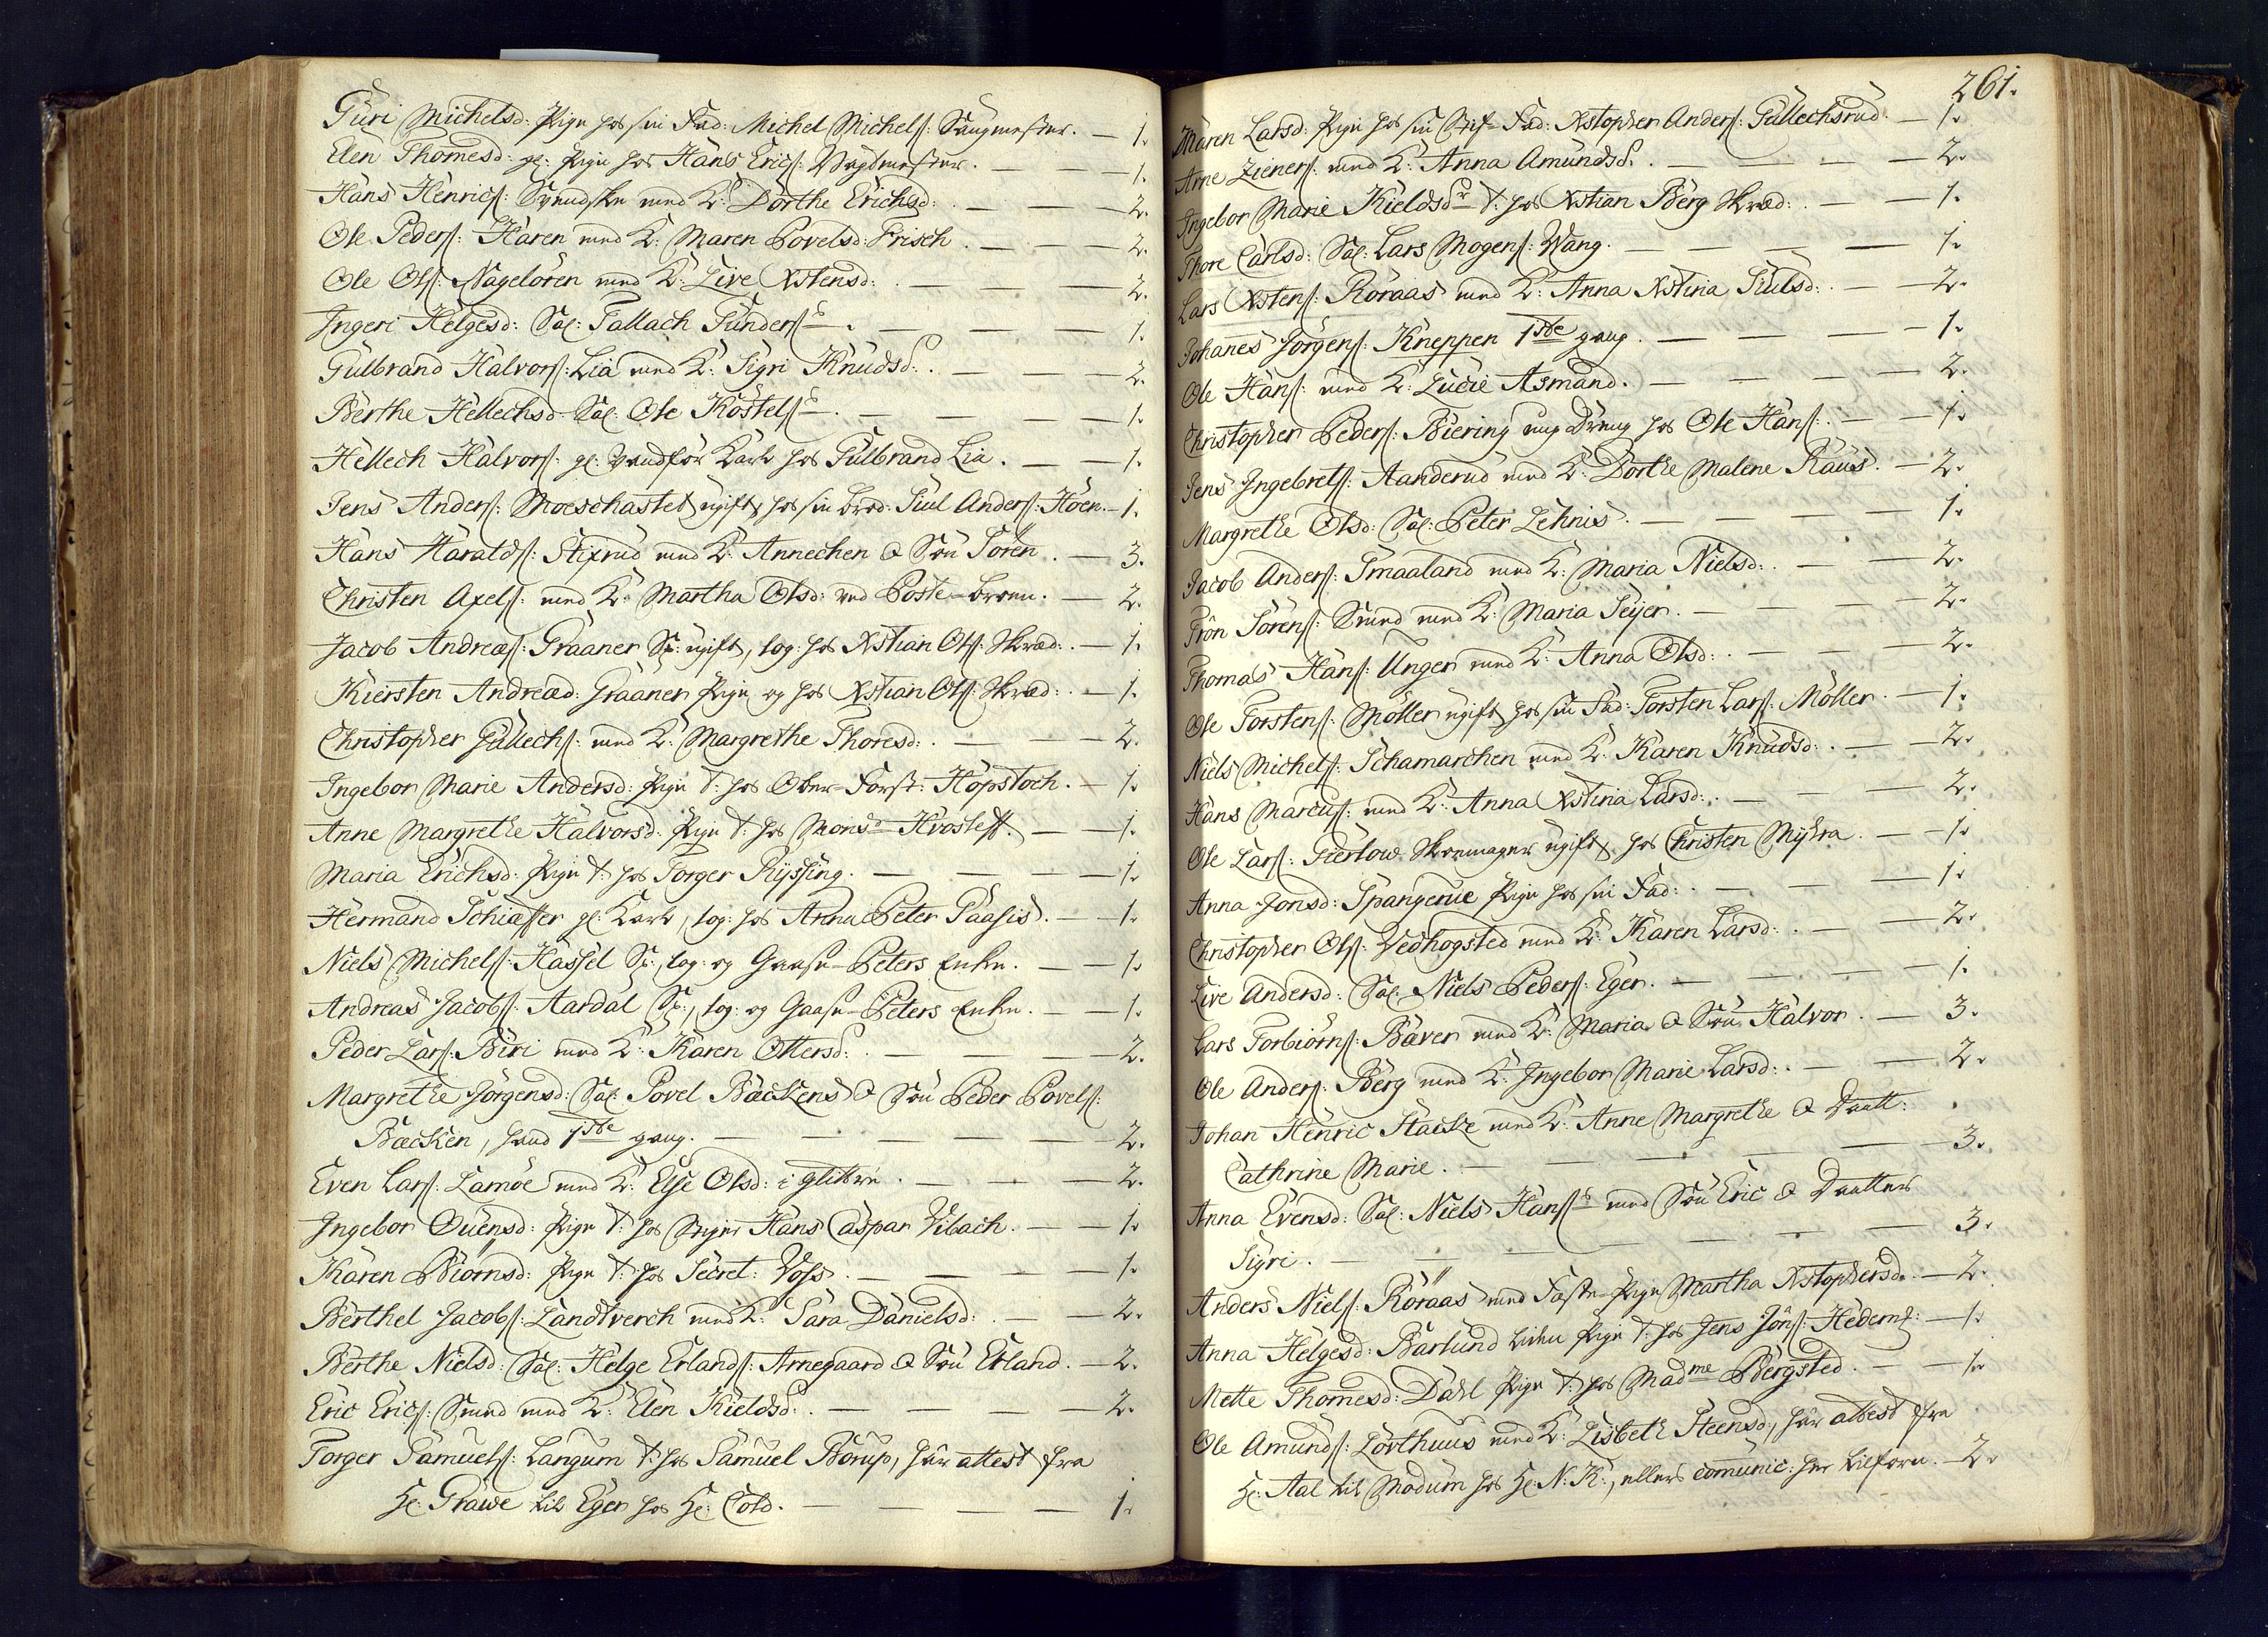 Guri Michelsd: Pige hos sin Fad: Michel Michels: Saugmester. — 1.
Elen Thomesd: gl: Pige hos Hans Erics: Vagtmester. — 1.
Hans Henrics: Svendske med K: Dorthe Erichsd: — 2.
Ole Peders: Haren med K: Maren Povelsd: Frisch. — 2.
Ole Ols: Nageløren med K: Live Xstensd: — 2.
Ingeri Helgesd: Sal: Tallach Gunders: — 1.
Gulbrand Halvors: Lia med K: Sigri Knudsd: — 2.
Berthe Hellechsd: Sal: Ole Kostels: — 1.
Hellech Halvors: gl: vandför Karl hos Gulbrand Lia. — 1.
Jens Anders: Moeschastet ugift, hos sin brod: Juul Anders: Hoen. — 1.
Hans Haralds: Stixrud med K: Annechen & Søn Søren. — 3.
Christen Axels: med K: Martha Olsd: ved Poste-broen. — 2.
Jacob Andreæs: Graaner Sr: ugift, log: hos Xstian Ols: Skræd: — 1.
Kiersten Andreæd: Graaner Pige og hos Xstian Ols: Skræd: — 1.
Christopher Gullechs: med K: Margrethe Thoresd: — 2.
Ingebor Marie Andersd: Pige t: hos Ober-Forst: Hopstoch. — 1.
Anne Margrethe Halvorsd: Pige t: hos Monsr Hvosleff. — 1.
Maria Erichsd: Pige t: hos Torger Ryssing. — 1.
Hermand Schiæffer gl: Karl, log: hos Anna Peter Paasis. — 1.
Niels Michels: Hassel Sr:, log: og Gaase-Peters Enke. — 1.
Andreas Jacobs: Aardal Sr:, log: og Gaase-Peters Enke. — 1.
Peder Lars: Biri med K: Karen Ottersd: — 2.
Margrethe Jörgensd: Sal: Povel Bæckens & Søn Peder Povels:
Bæcken, hand 1ste gang. — 2.
Even Lars: Lamöe med K: Else Olsd: i Glitre. — 2.
Ingebor Ouensd: Pige t: hos Seigr Hans Caspar Vibach. — 1.
Karen Biörnsd: Pige t: hos Secret: Voss. — 1.
Berthel Jacobs: Landtverch med K: Sara Danielsd: — 2.
Berthe Nielsd: Sal: Helge Erlands: Arnegaard & Søn Erland. — 2.
Eric Erics: Smed med K: Elen Kieldsd: — 2.
Torger Samuels: Langum t: hos Samuel Borup, har attest fra
Hr: Grawe til Eger hos Hr: Cold. — 1.
261.
Maren Larsd: Pige hos sin Stif-Fad: Xstopher Anders: Gullechsrud. — 1.
Arne Zieners: med K: Anna Amundsd: — 2.
Ingebor Marie Kieldsdr t: hos Xstian Berg Skræd: — 1.
Thore Carlsd: Sal: Lars Mogens: Wang. — 1.
Lars Xstens: Röraas med K: Anna Xstina Juulsd: — 2.
Johanes Jörgens: Kneppen 1ste gang. — 1.
Ole Hans: med K: Lucie Asmand. — 2.
Christopher Peders: Biering ung Dreng hos Ole Hans: — 1.
Jens Ingebrets: Aanderud med K: Dorthe Malene Raus. — 2.
Margrethe Olsd: Sal: Peter Lehnis. — 1.
Jacob Anders: Smaaland med K: Maria Nielsd: — 2.
Trön Sörens: Smed med K: Maria Seyer. — 2.
Thomas Hans: Unger med K: Anna Olsd: — 2.
Ole Torstens: Möller ugift, hos sin Fad: Torsten Lars: Möller. — 1.
Niels Michels: Schamarchen med K: Karen Knudsd: — 2.
Hans Marcus: med K: Anna Xstina Larsd: — 2.
Ole Lars: Gierlow Skoemager ugift, hos Christen Myhra. — 1.
Anna Jonsd: Spangerue Pige hos sin Fad: — 1.
Christopher Ols: Vedhogsted med K: Karen Larsd: — 2.
Live Andersd: Sal: Niels Peders: Eger. — 1.
Lars Torbiörns: Bæver med K: Maria & Søn Halvor. — 3.
Ole Anders: Berg med K: Ingebor Marie Larsd: — 2.
Johan Henric Stacke med K: Anne Margrethe & Daatt:
Cathrine Marie. — 3.
Anna Evensd: Sal: Niels Hans: med Søn Eric & Daatter
Sigri. — 3.
Anders Niels: Röraas med Fæste-Pige Martha Xstophersd. — 2.
Anna Helgesd: Barlund liden Pige t: hos Jens Jöns: Hedemk: — 1.
Mette Thomesd: Dahl Pige t: hos Madme Bergsted. — 1.
Ole Amunds: Lörthuus med K: Lisbeth Steensd:, har attest fra
Hr: Aal til Modum hos Hr: N: K:, ellers comunic: her tilforn. — 2.